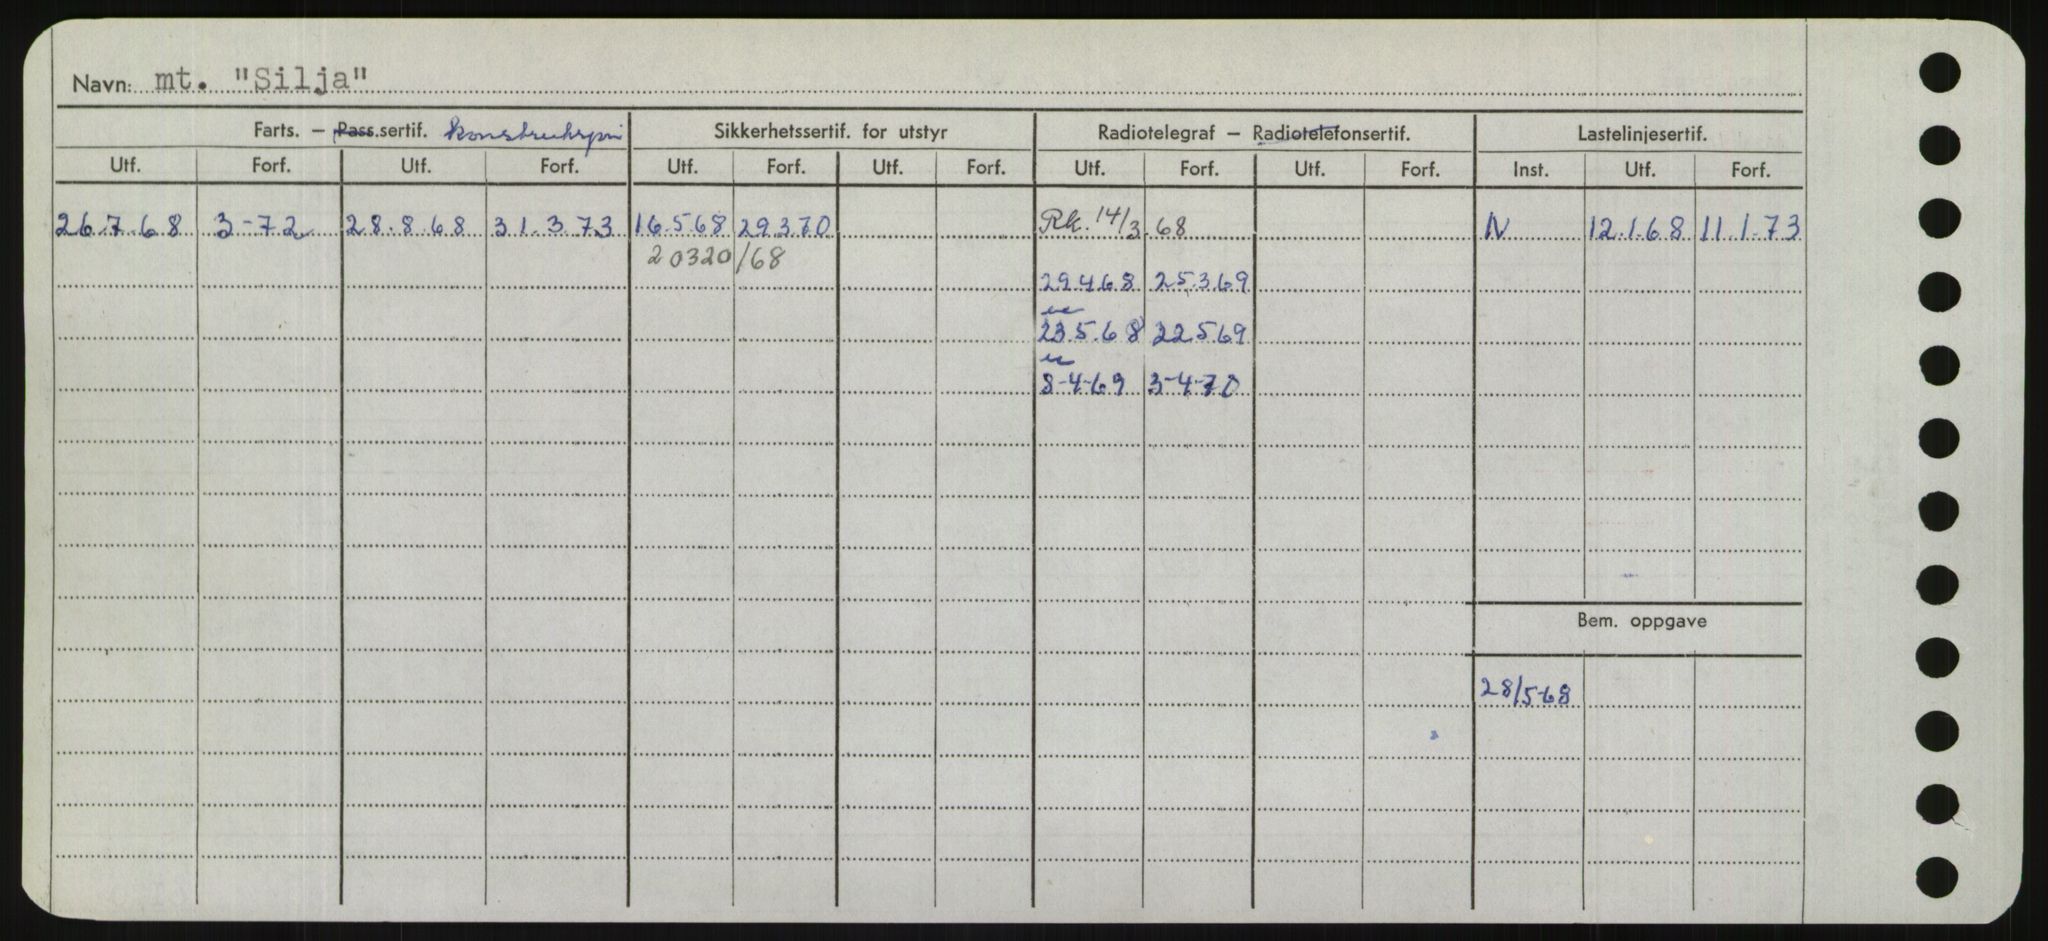 Navn: mt. "Silja"
Farts. – Pass.sertif. Sikkerhetssertif. for utstyr Radiotelegraf – Radiotelefonsertif. Lastelinjesertif.
Utf. Forf. Utf. Forf. Utf. Forf. Utf. Forf. Utf. Forf. Utf. Forf. Inst. Utf. Forf.
26.7.68 3-72 28.8.68 31.3.73 16.568 29370 Rk. 14/3.68 N 12.1.68 11.1.73
20320/68
29468 25.369
23.5.68 22569
8-4-69 3-4-70
Bem. oppgave
28/5-68